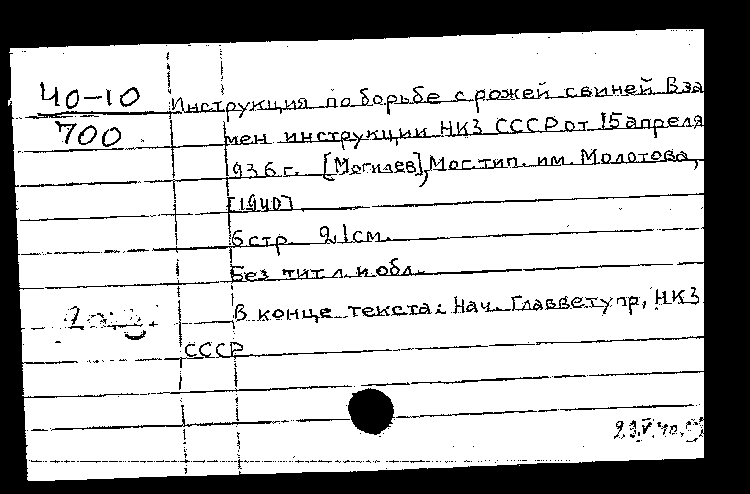 40-10
700
Инструкция по борьбе с рожей свиней Вза
мен инструкции НКЗ СССР от 15 апреля
1936 г. [Могилев], Мог. тип. им. Молотова,
[1940]
6 стр. 21 см.
Без тит. л. и обл.
В конце текста: Нач. Главветупр, НКЗ
СССР
23.V.40.